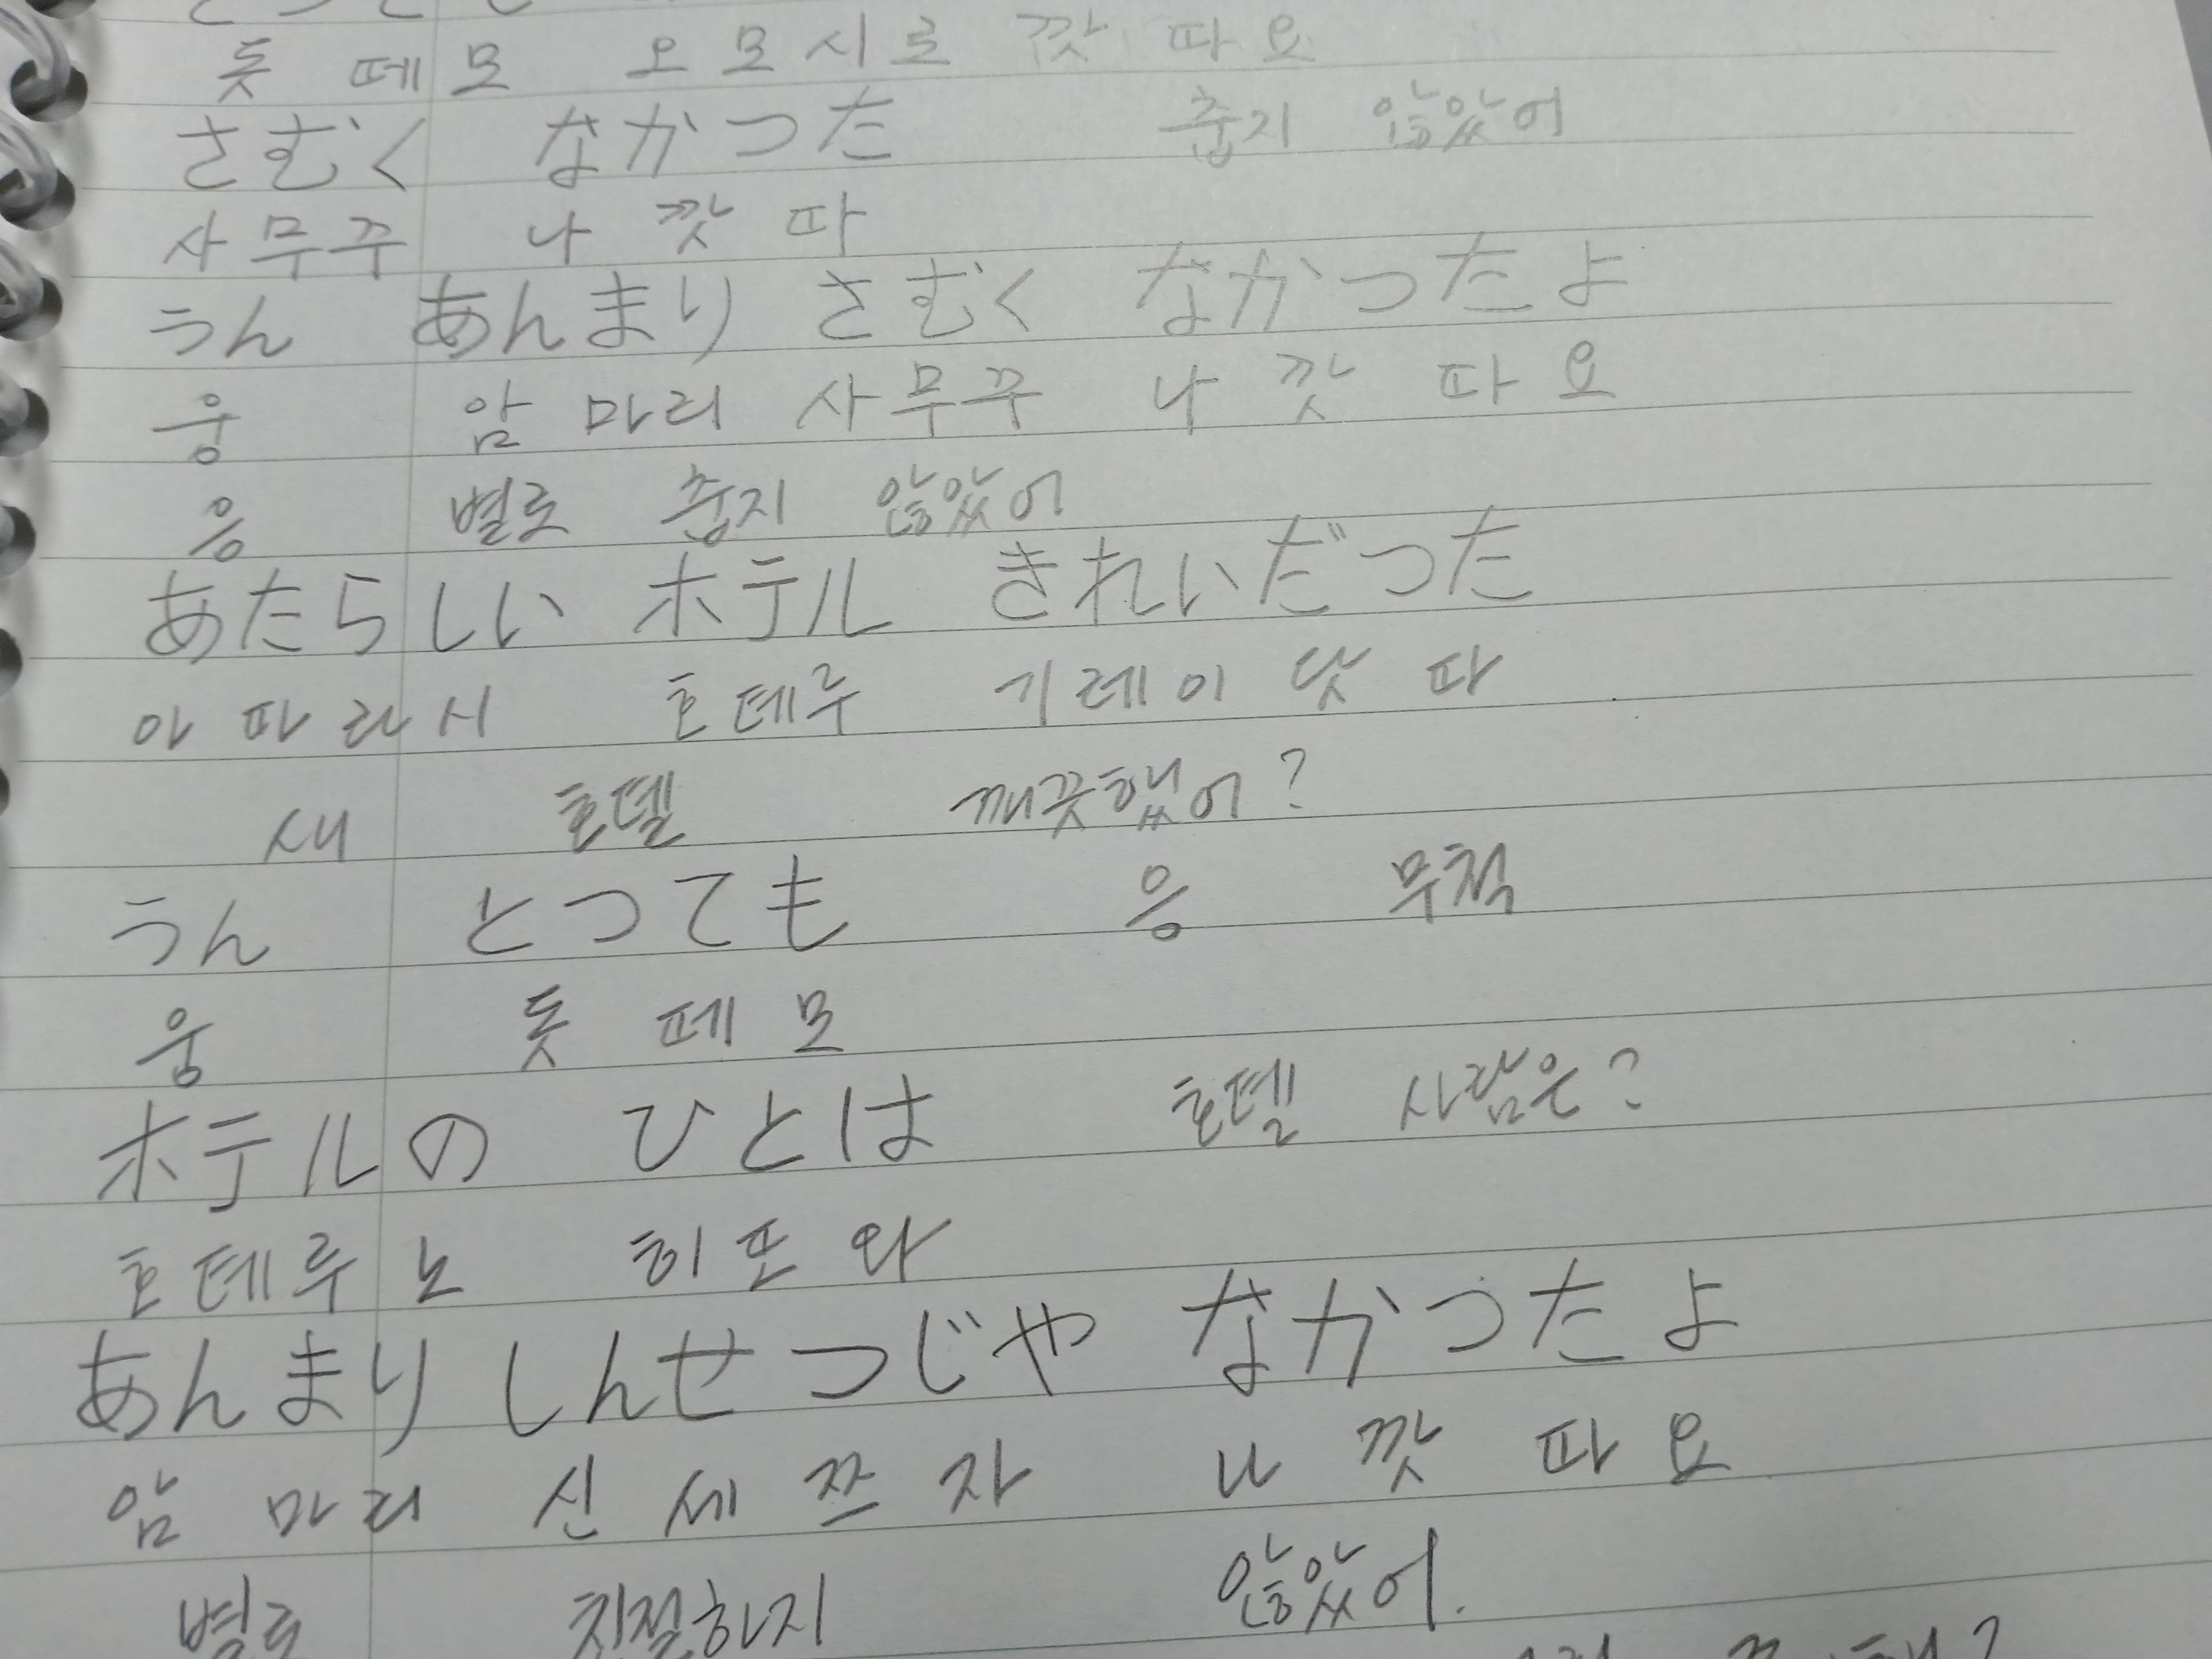 돗 떼 모 오 모 시 로 깟 따 요
さむく なかつた 춥지 않았어
사 무 꾸 나 깟 따
うん あんまり さむく なかつたよ
웅 암 마 리 사 무 꾸 나 깟 따 요
응 별로 춥지 않았어
あたらしい ホテル きれいだつた
아 따 라 시 호 테 루 기 레 이 닷 따
새 호텔 깨끗했어?
うん とつても 응 무척
웅 돗 떼 모
ホテルの ひとは 호텔 사람은?
호 테 루 노 히 또 와
あんまり しんせつじや なかつたよ
암 마 리 신 세 쯔 쟈 나 깟 따 요
별로 친절하지 않았어.